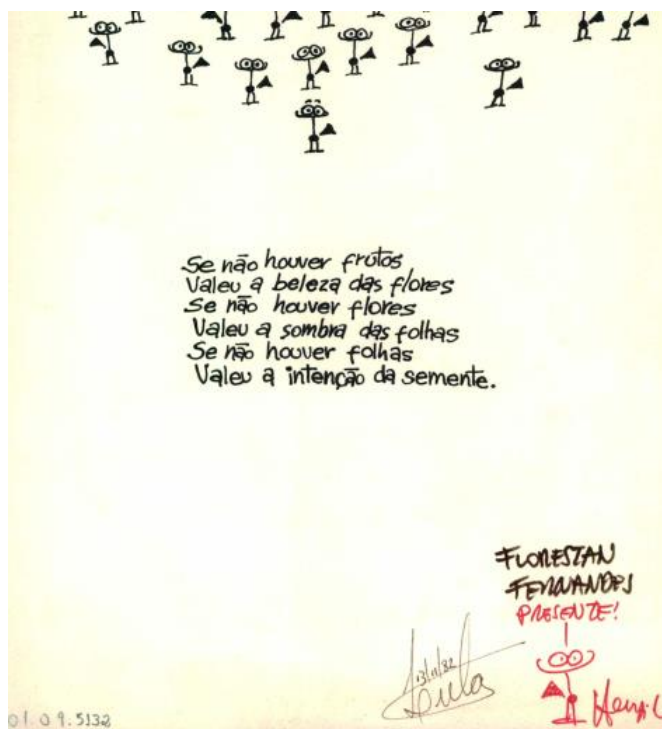 Se não houver frutos
Valeu a beleza das flores
Se não houver flores
Valeu a sombra das folhas
Se não houver folhas
Valeu a intenção da semente.
FLORESTAN
FERNANDES
PRESENTE!
13/11/82
01.09.5132